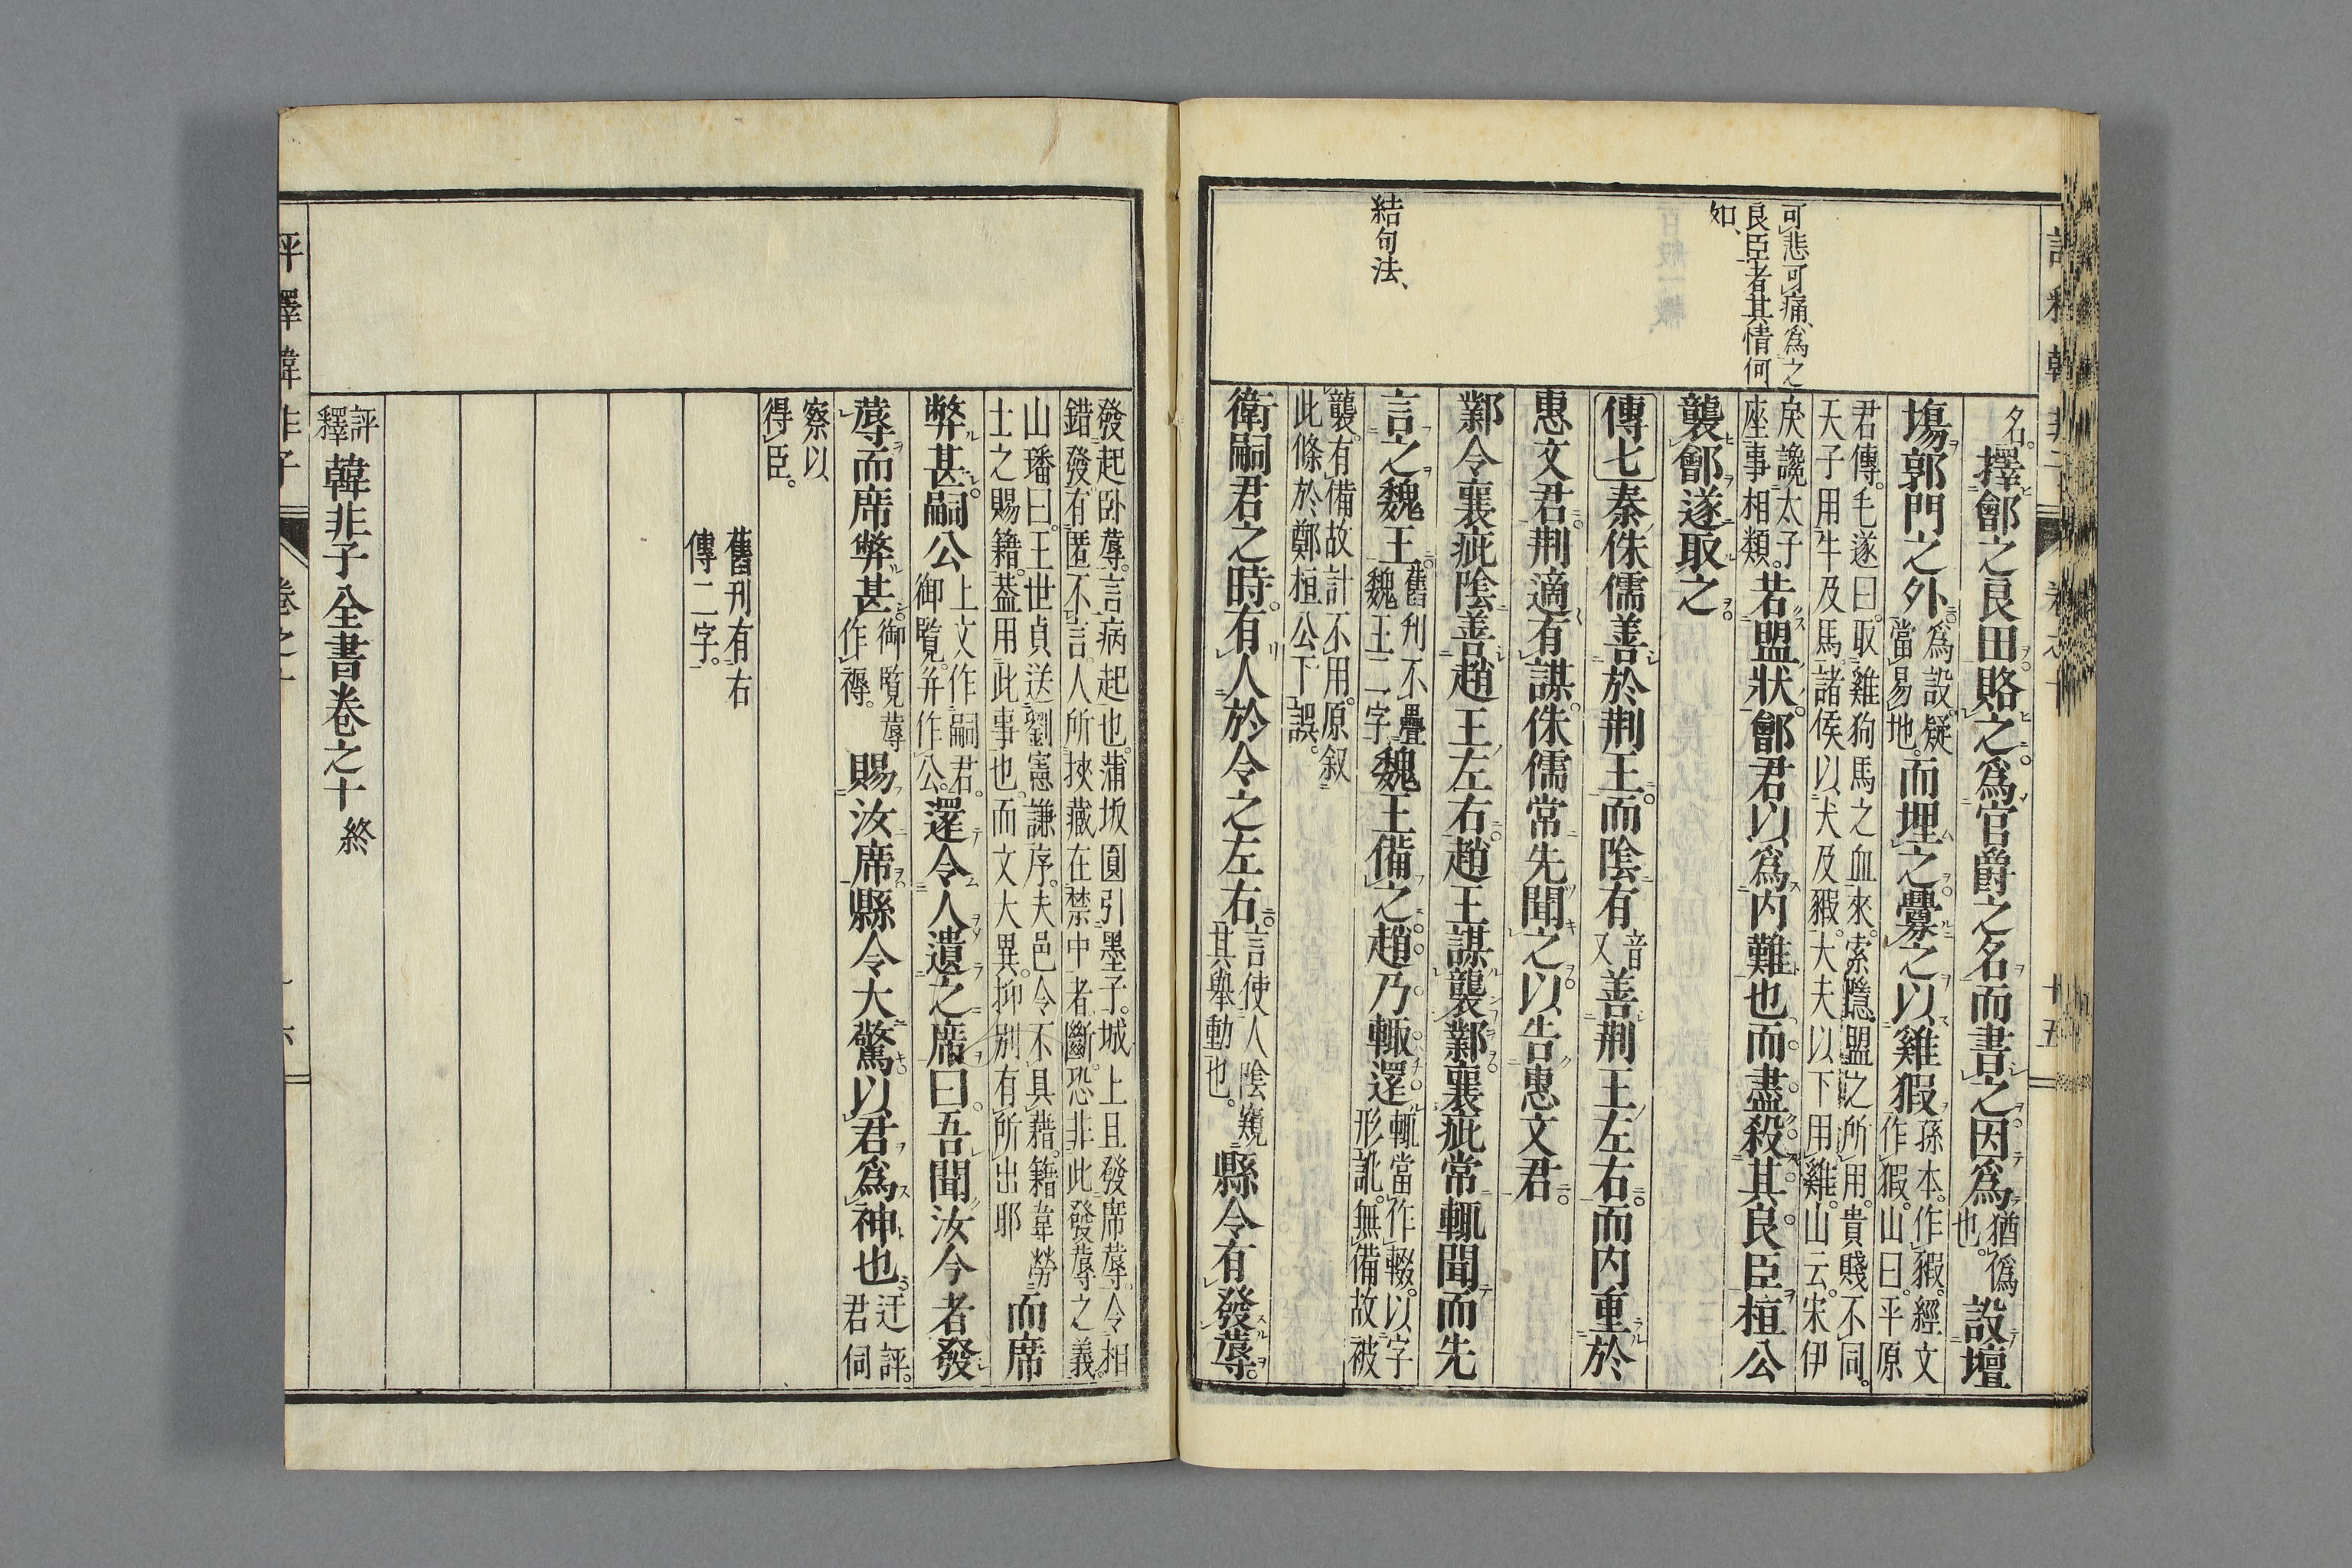 可悲可痛、爲之
良臣者其情何
如、
結句法、
名。擇鄶之良田賂之。爲官爵之名而書之。因爲猶僞也。設壇
塲郭門之外。爲設疑當易地。而埋之釁之以雞猳孫本。作豭。經文作猳。山曰。平原
君傳。毛遂曰。取雞狗馬之血來。索隱。盟之所用。貴賤不同。
天子用牛及馬。諸侯以犬及豭。大夫以下用雞。山云。宋伊
戾讒太子座事相類。若盟狀。鄶君以爲内難也而盡殺其良臣桓公
襲鄶遂取之。
傳七秦侏儒善於荆王。而陰有音又善荆王左右。而内重於
惠文君。荆適有謀。侏儒常先聞之。以告惠文君。
鄴令襄疵陰善趙王左右。趙王謀襲鄴。襄疵常輒聞而先
言之魏王。舊刋不疊魏王二字魏王備之。趙乃輙還。輒當作輟。以字形訛。無備故被
襲。有備故計不用。原叙
此條於鄭桓公下誤。
衛嗣君之時。有人於令之左右。言使人陰窺其舉動也。縣令有發蓐。
發起卧蓐。言病起也。蒲坂圓引墨子。城上且發席蓐。令相
錯發有匿不言人所挾藏在禁中者斷。恐非此發蓐之義。
山璠曰。王世貞送劉憲謙序。夫邑令不具藉。籍韋勞
士之賜籍。葢用此事也。而文大異。抑別有所出耶而席
弊甚。嗣公上文作嗣君。御覧。幷作公。還令人遺之席曰。吾聞汝今者發
蓐而席弊甚。御覧蓐作褥。賜汝席縣令大驚。以君爲神也。迂評。君伺
察以
得臣。
舊刋有右
傳二字。
評釋韓非子全書卷之十終